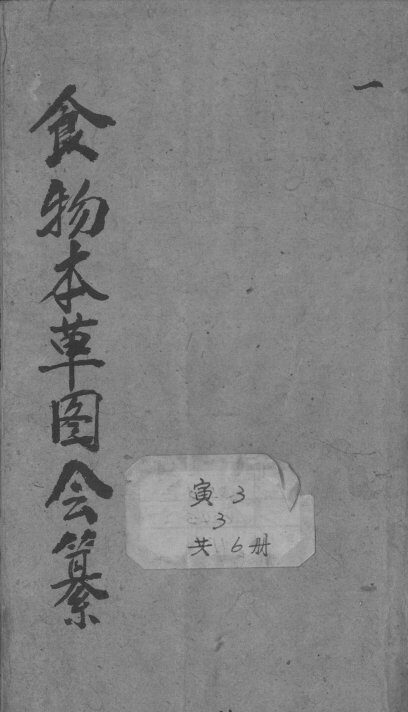 一
食物本草图会纂
寅 3
3
共 6册